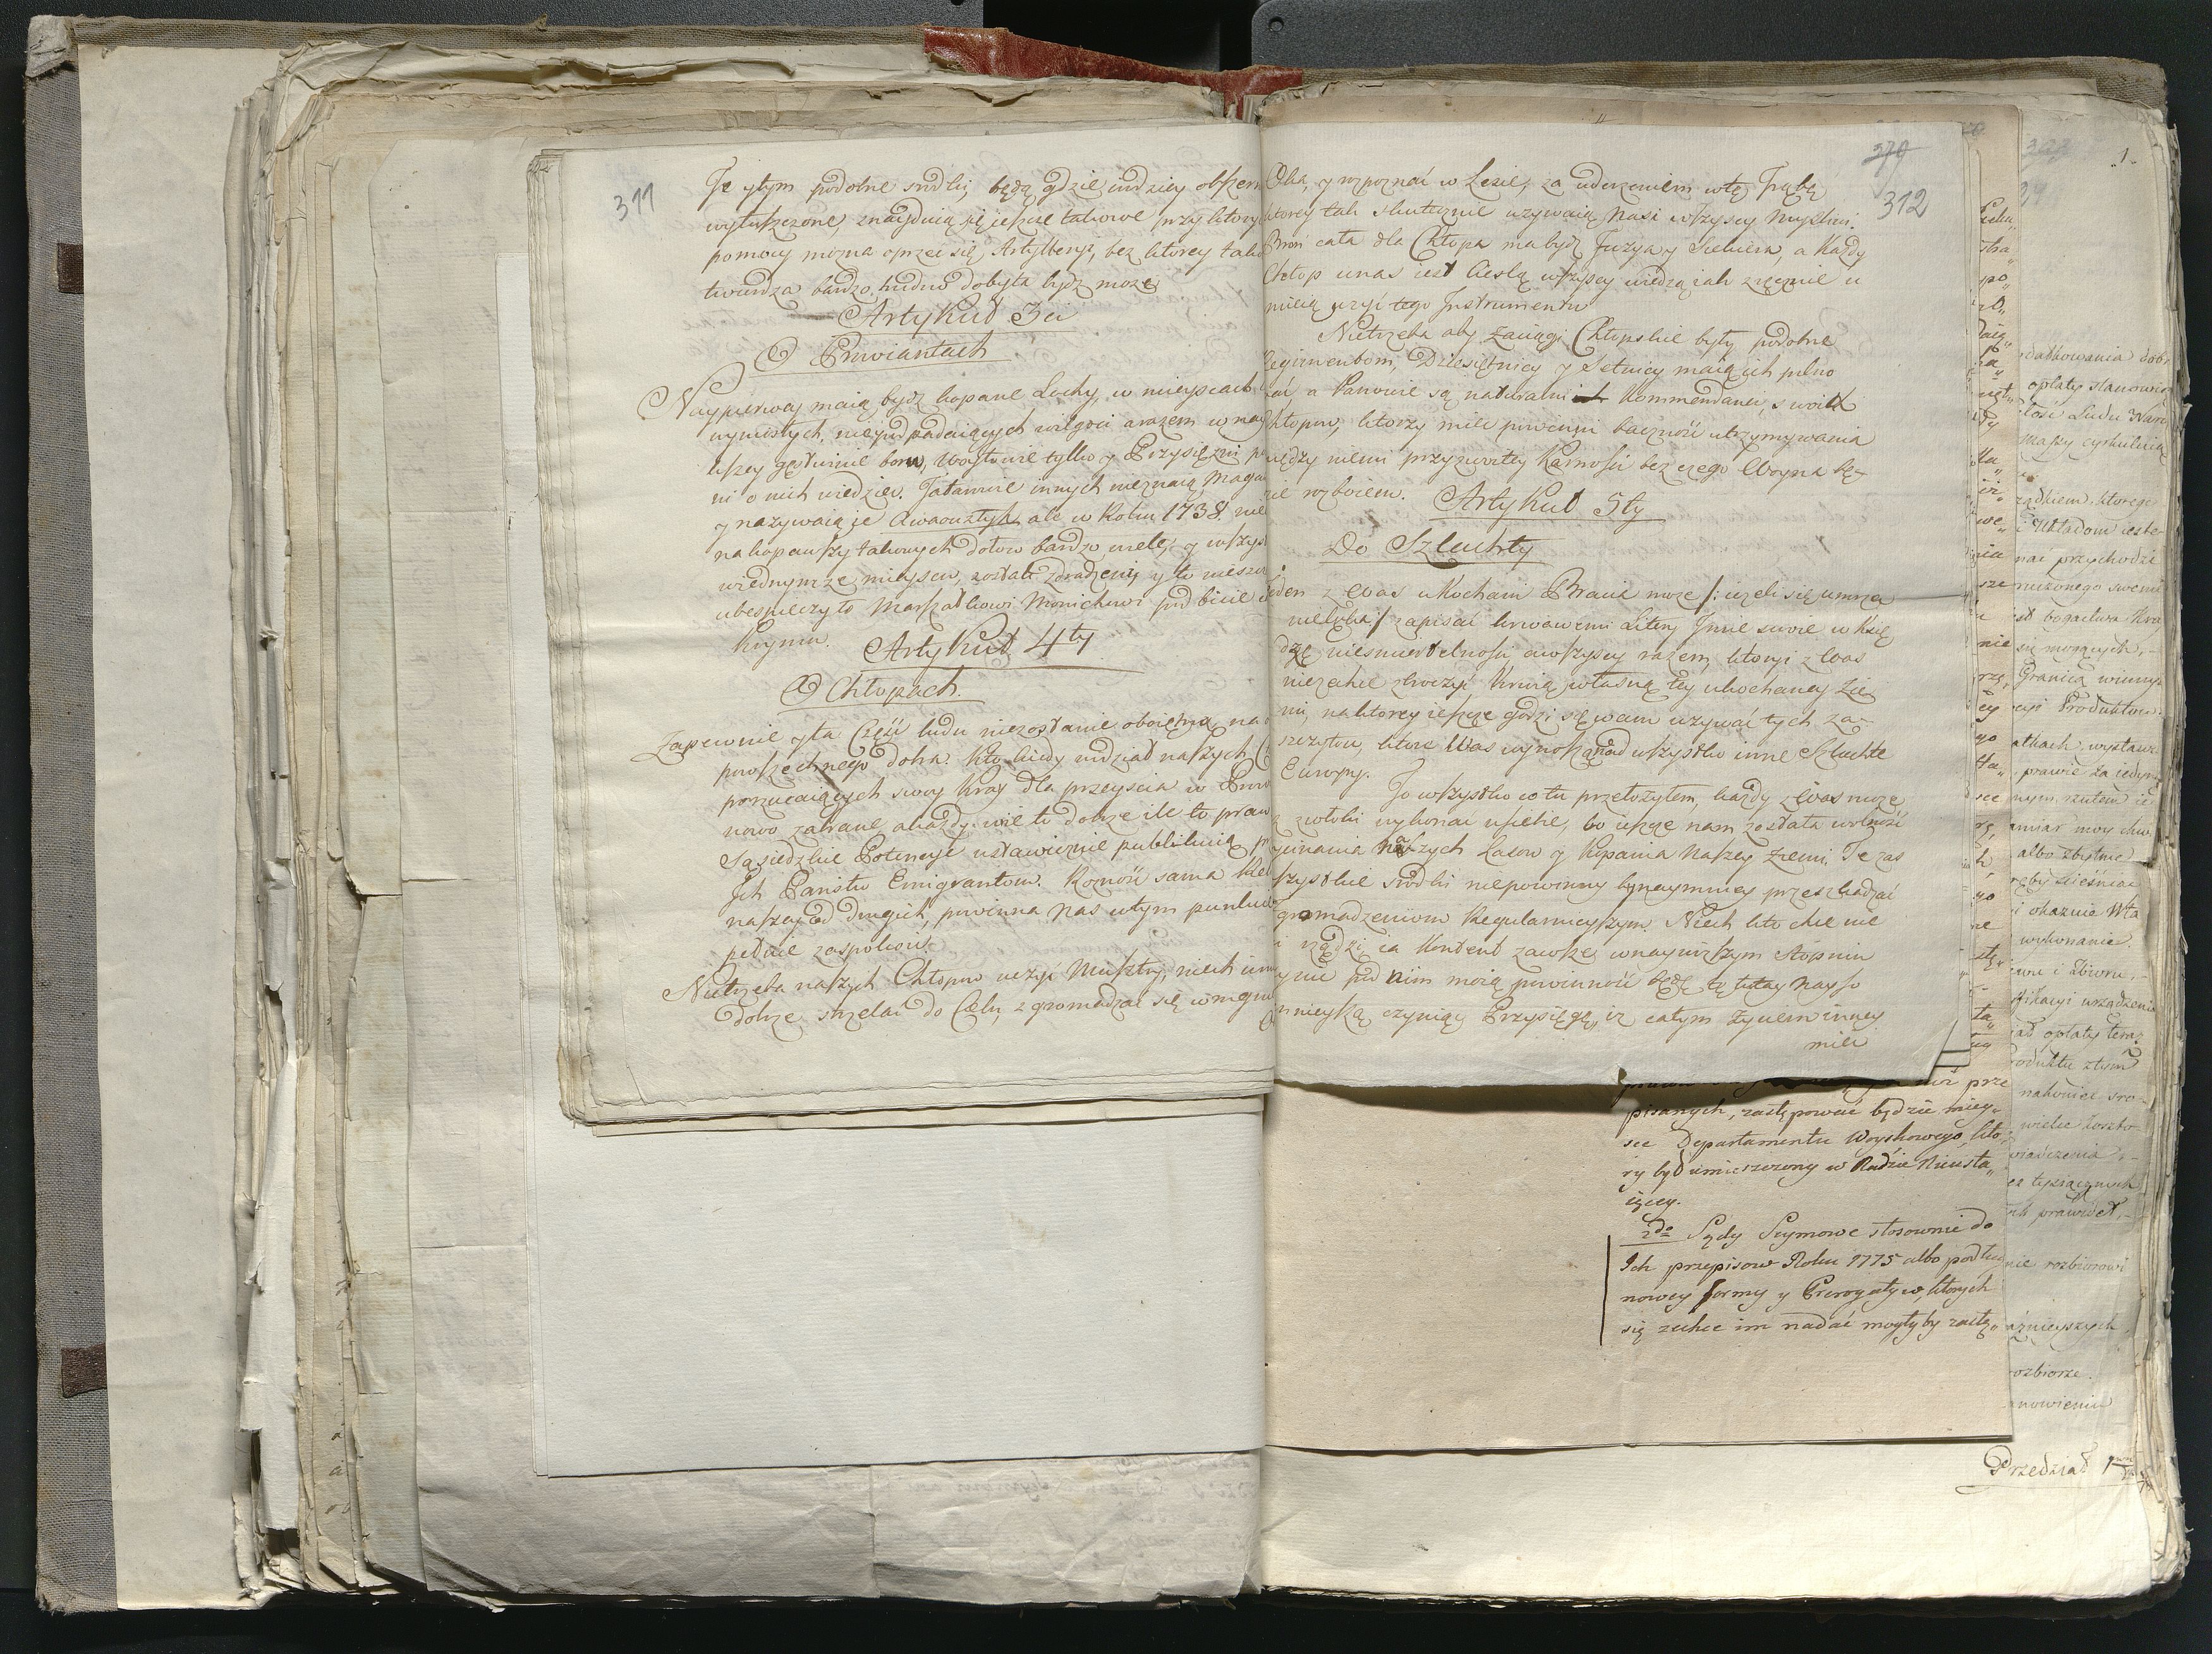 311
Te y tym podobne srodki, będą gdzie indziey obszern
wytłuszczone, znayduią się ieszcze takowe przy ktory
pomocy można oprzeć się Artylleryi, bez ktorey tako
twierdza bardzo trudno dobyta bydź może
Artykuł 3ci
O Prowiantach
Naypierwey maią bydź kopane Lochy, w mieyscach
wyniosłych, niepodpadaiących wilgoci a razem w nay
bszey gęstwinie boru, Woytowie tylko y Przysięzni po
ni o nich wiedzieć. Tatarowie innych nieznaią Maga
y nazywaią je ale w Roku 1738. nie
nakopawszy takowych dołow bardzo wiele, y wszys
w iednymże mieyscu, zostali zdradzeni, y to nieszcz
ubespieczyło Marszałkowi Monichowi podbicie
Krymu.
Artykuł 4ty
O Chłopach.
Zapewnie y ta Część ludu niezostanie oboiętną na
powszechnego dobra. Kto kiedy widział naszych
porzucaiących swoy Kray dla przeyscia w Prow
nowo zabrane, a każdy wie to dobrze ile to praw
Sąsiedzkie Potencye ustawicznie publikuią p
Ich Państw Emigrantow. Rozność sama
naszey od drugich, powinna nas w tym punkci
pełnie zaspokoić.
Nietrzeba naszych Chłopow uczyć Musztry, niech um
dobrze strzelać do Celu, zgromadzać się w mgni
O
379
312
Oka, y rozpoznać w Lesie, za uderzeniem w tę Trąbę
ktorey tak skutecznie używaią Nasi wszyscy Myśliwi.
Broń cała dla Chłopa ma bydź Fuzya y Siekiera, a Każdy
Chłop u nas iest Cieślą wszyscy wiedzą iak zręcznie u
mieią użyć tego Instrumentu
Nietrzeba aby zaciągi Chłopskie były podobne
Regimentom, Dziesiętnicy y Setnicy maią ich pilno
a Panowie są naturalni Kommendanci swoich
Chłopow, ktorzy mieć powinni baczność utrzymywania
między niemi przyzwoitey Karności bez czego Woyna bę-
zie rozboiem.
Artykuł 5ty
Do Szlachty
Jeden z Was ukochani Bracia może /: ieżeli się umrzeć
nielęka / zapisać krwawemi Litery Imie swoie w Księ
dze niesmiertelności a wszyscy razem, ktoryż z Was
niezechce zbroczyć Krwią własną tey ukochaney Zie
mi, na ktorey ieszcze godzi się wam używać tych za-
szczytow, ktore Was wynoszą nad wszystko inne Szlachte
Europy.
To wszystko co tu przełożyłem, każdy z Was może
z zwłoki wykonać u siebie, bo ieszcze nam została wolność
ycinania Naszych Lasow y Kopania Naszey Ziemi. Te zas
szystkie srodki niepowinny bynaymniey przeszkadzać
gromadzeniom Regularnieyszym. Niech kto chce nie
i rządzi, ia Kontent zawsze w naywiższym stopniu
y nie pod nim moią powinność będę tę tutay nayso
nnieyszą czyniąc Przysięgę, iż całym życiem inney
mieć
pisanych, zastępować będzie miey„
sce Departamentu Woyskowego, kto„
ry był umieszczony w Radzie Nieusta„
iącey.
2do Sądy Seymowe stosownie do
Ich przepisow Roku 1775 albo podług
nowey formy y Prerogatyw, ktorych
się zechce im nadać mogłyby zastę„
.1.
datkowania dobr
opłaty stanowią
tości Ludu
Massy cyrkulacią
ządkiem, ktorego
i Układom ieste
nać przychodzi
nużonego swemi
est bogactwa Kra
się mogących,-
Granicą
cyi Produktow
atkach, wystawi
prawie za iedyn
albo zbytnie
i okaznie
wykonanie.
i Zbioru,-
urządzenie
opłaty teraz
Produktu z tym
nakoniec
wielce koszto
prawideł,-
nie rozbiorowi
ażnieyszych,
rozbiorze.
nowieniu
Przedział 1wszy